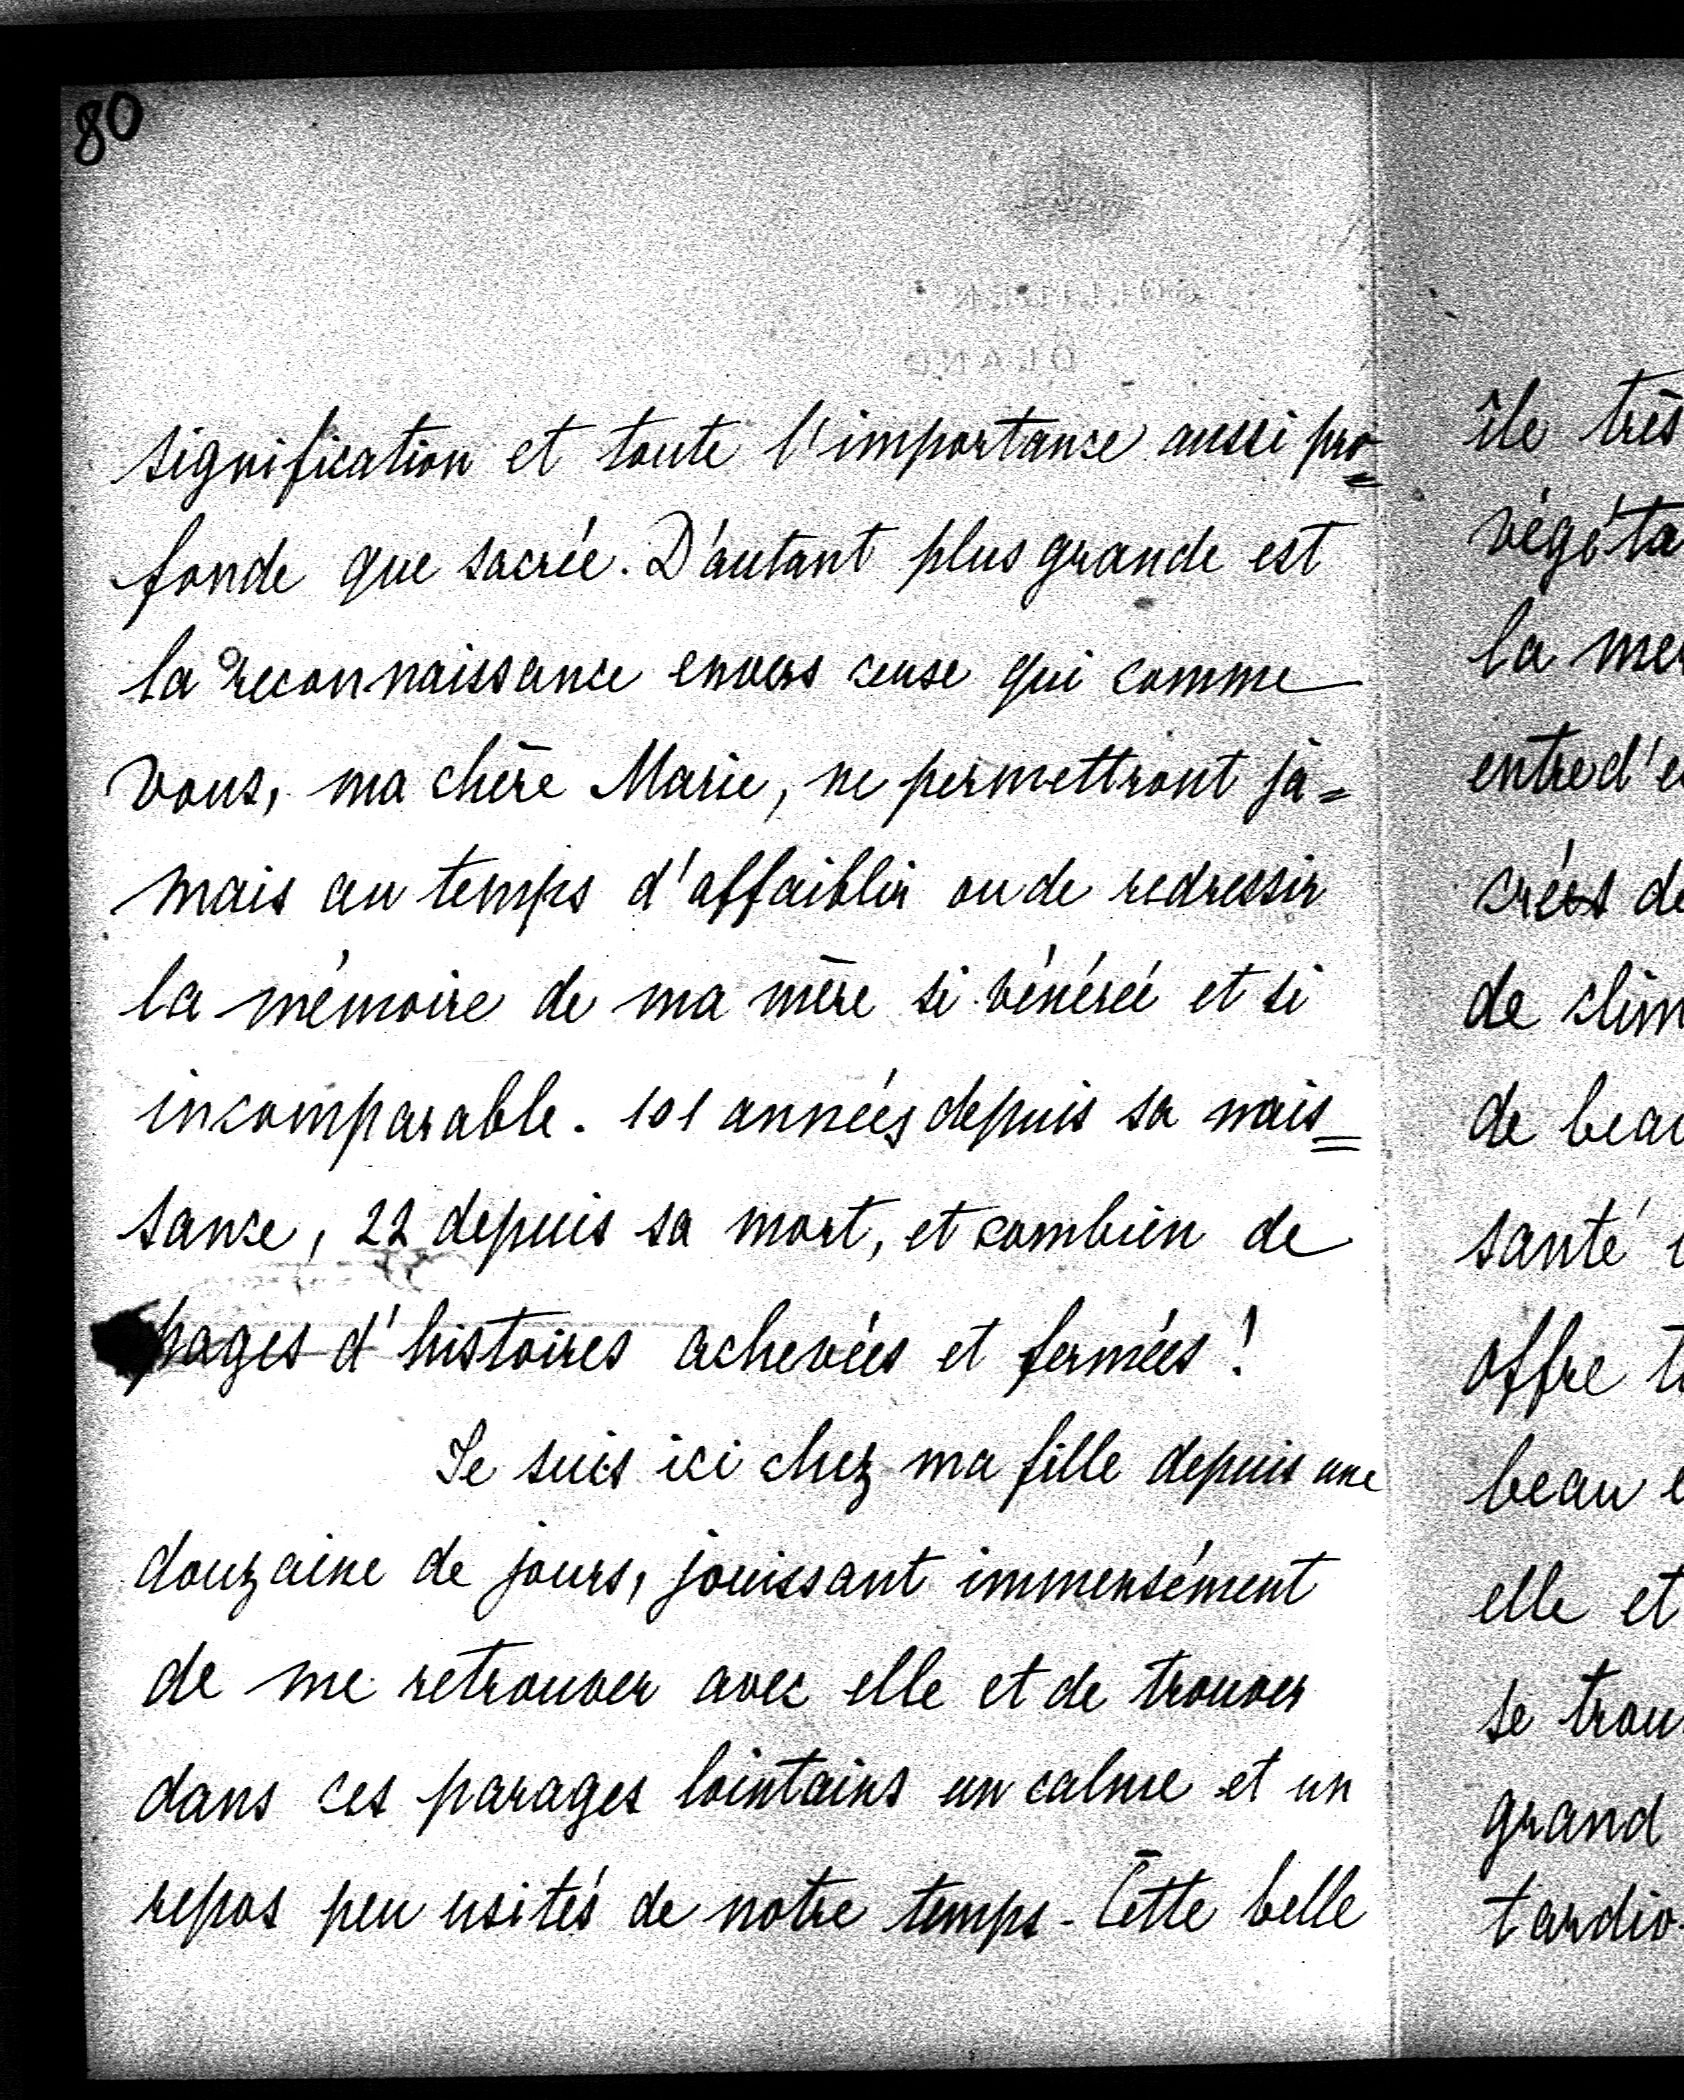 80
signification et toute l'importance aussi pro=
fonde que sacrée. D'autant plus grande est
la reconnaissance envers ceuse qui comme
vous, ma chère Marie, ne permettront ja=
mais au temps d'affaiblir ou de redressir
la mémoire de ma mère si vénéréé et si
incomparable. 101 années depuis sa nais=
sance, 22 depuis sa mort, et combien de
pages d'histoires achevées et fermées!
Je suis ici chez ma fille depuis une
douzaine de jours, jouissant immensément
de me retrouver avec elle et de trouver
dans ces parages lointains un calme et un
repos peu usités de notre temps. Cette belle
île très
végéta
la mer
entre d'e
créés de
de clim
de beau
santé
offre t
beau e
elle et
se trou
grand
tardiv